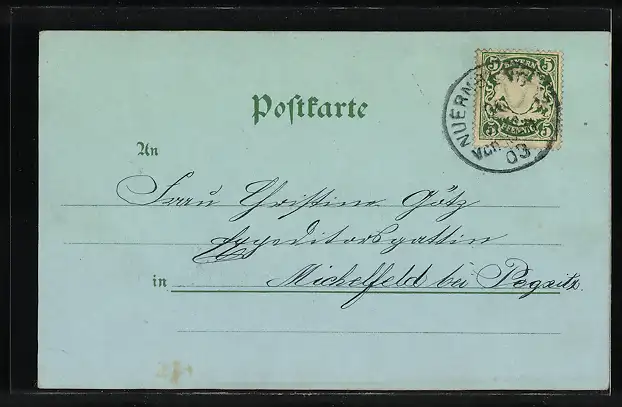 Postkarte
BAYERN
5 5
5 5
NUERNB
03
An
Frau Christine Götz
Expeditorsgattin
in Michelfeld bei Pegnitz.